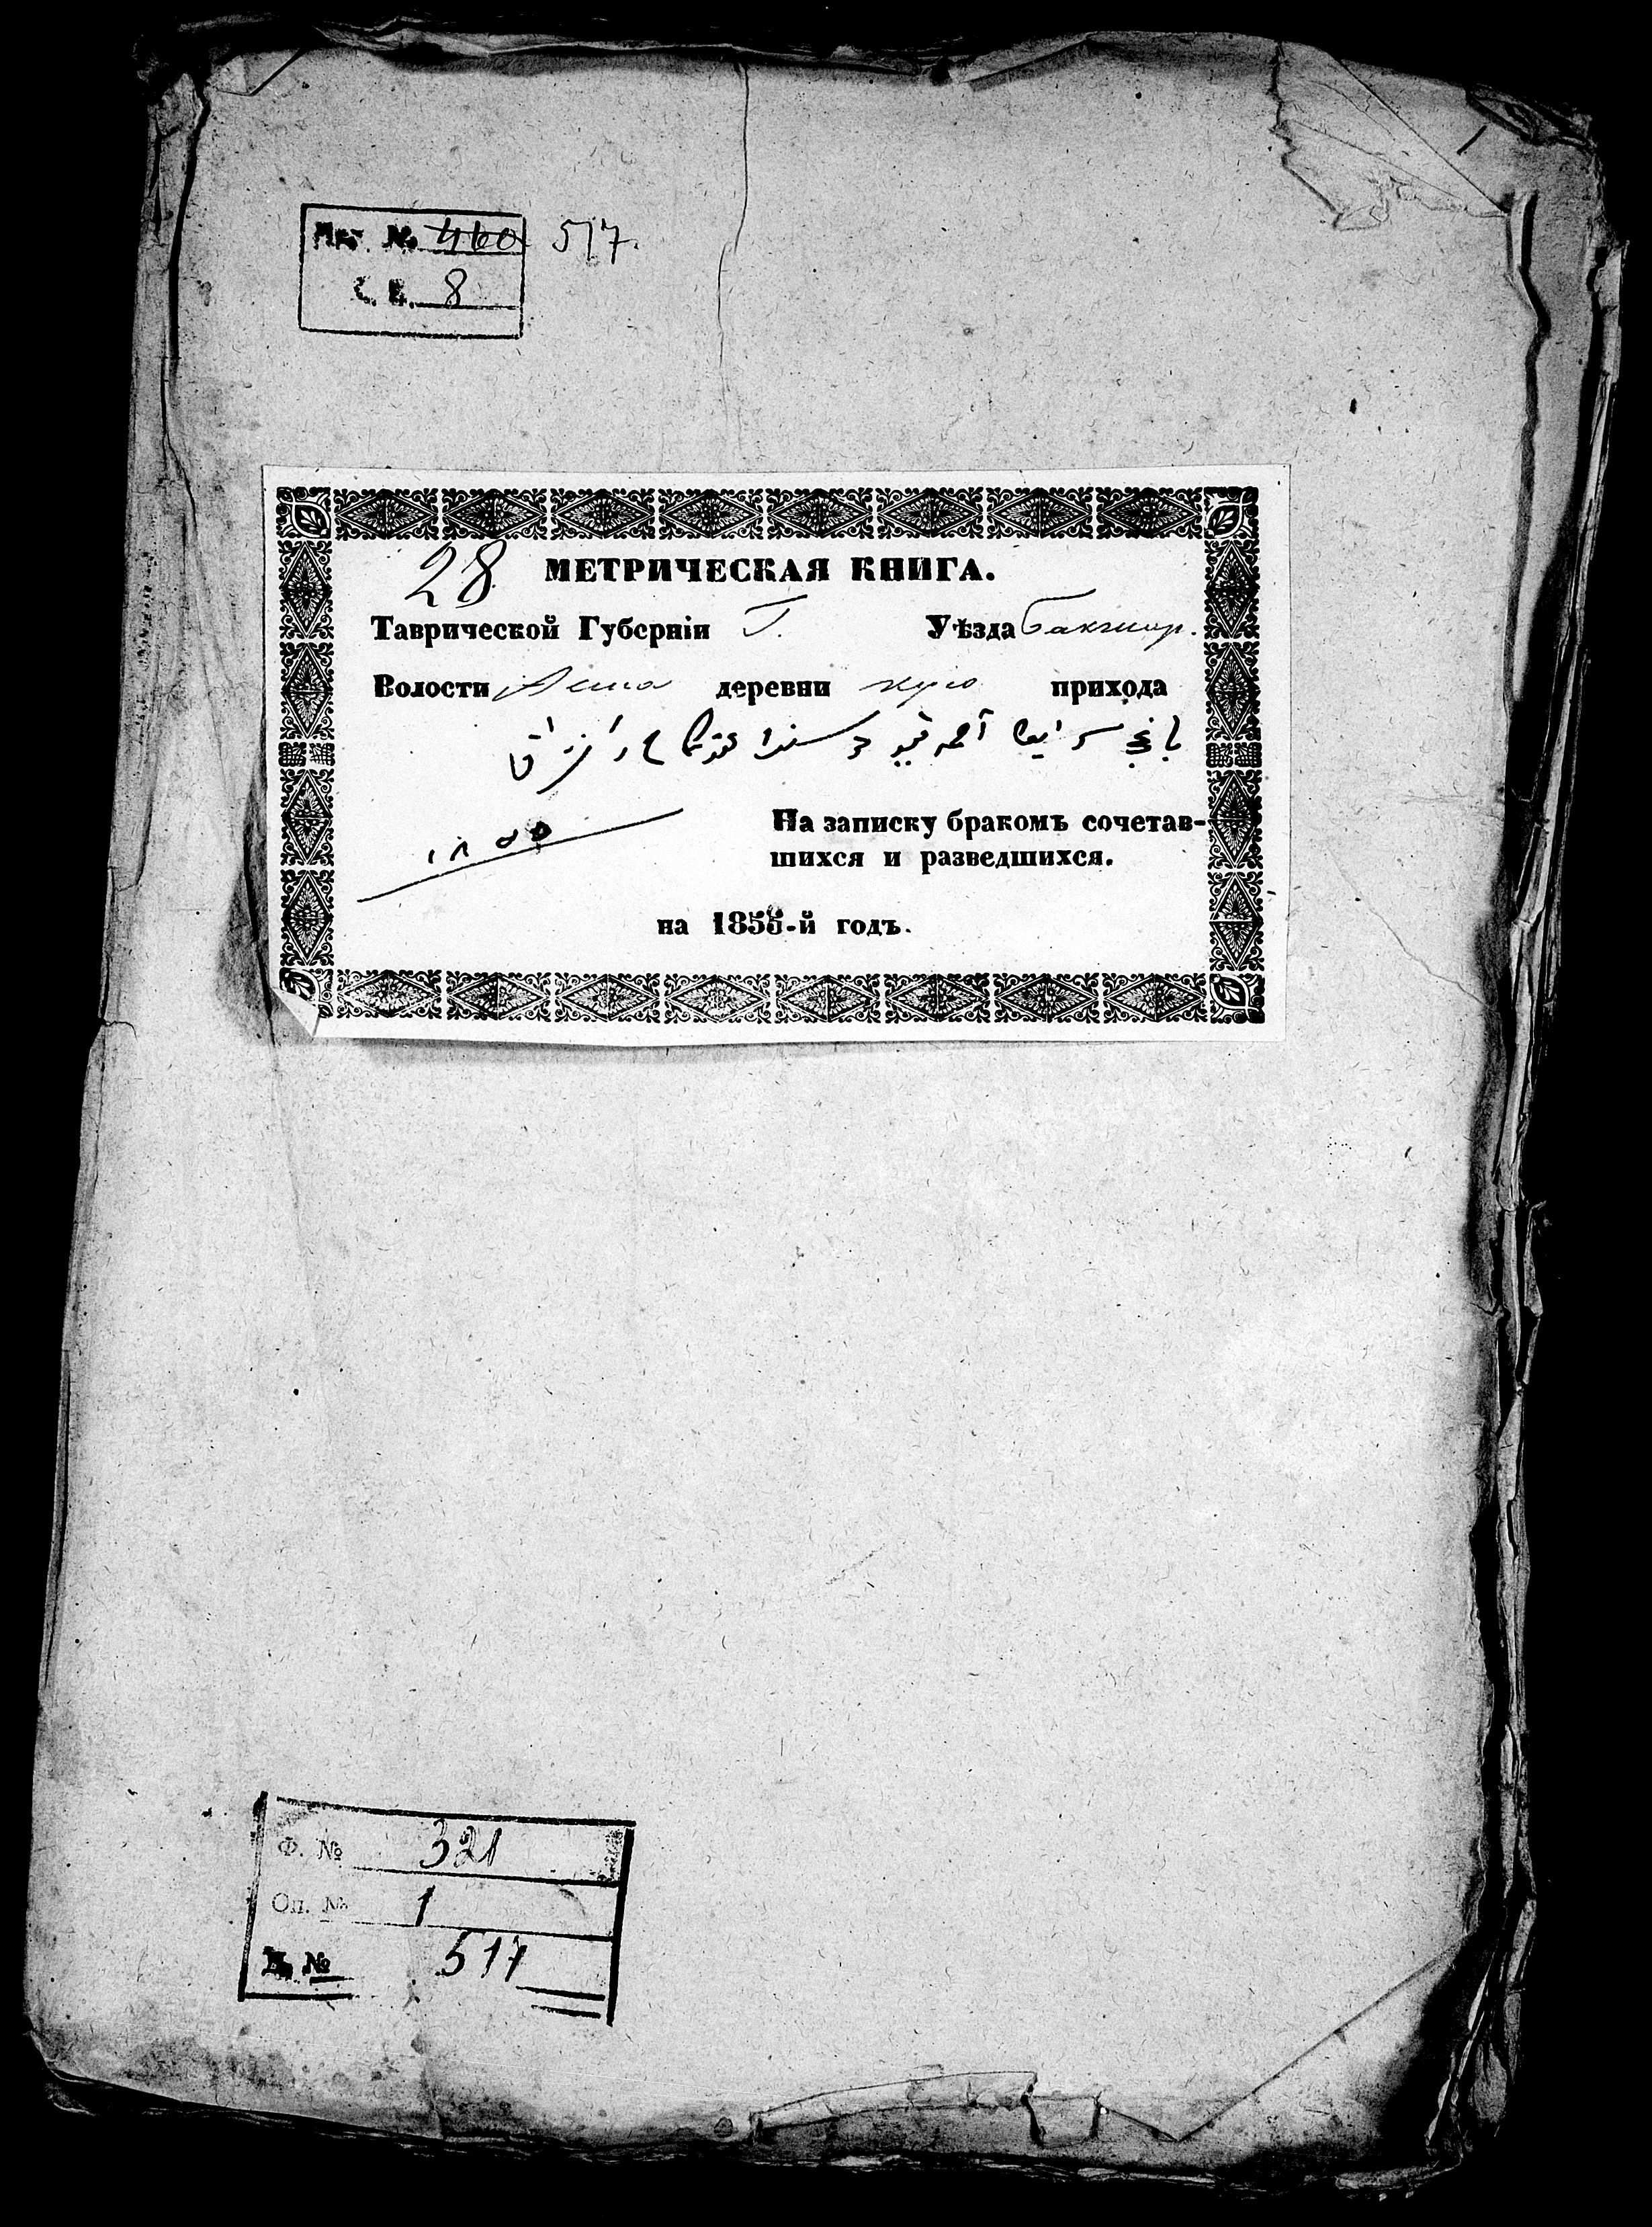 Мет. № 460 517.
С. В. 8
28 МЕТРИЧЕСКАЯ КНИГА.
Таврической Губерніи Г. Уѣзда Бакчисар.
Волости деревни прихода
باغچه سراينك
١٨٥٥
На записку бракомъ сочетав-
шихся и разведшихся.
на 1855-й годъ.
Ф. № 321
Оп. № 1
Д. № 517